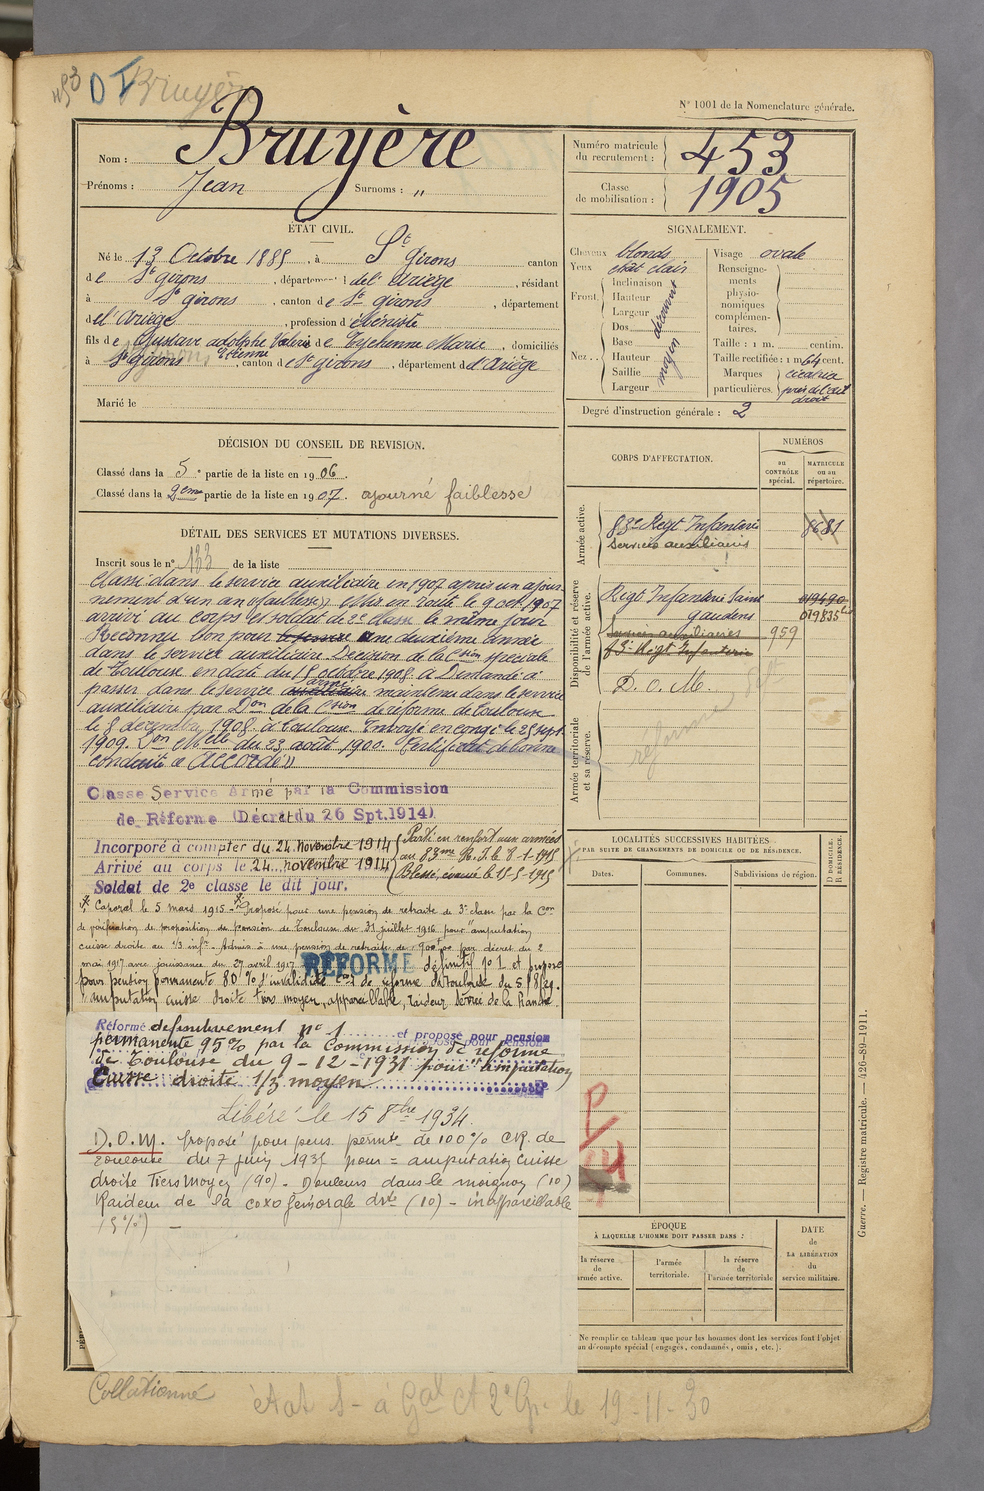 453 DI Bruyère
N° 1001 de la Nomenclature générale.
Nom : Bruyère
Prénoms : Jean Surnoms : "
Numéro matricule du recrutement : 453
Classe de mobilisation : 1905
ÉTAT CIVIL.
Né le 13 Octobre 1885, à St Girons canton
de St Girons, département de l'Ariège, résidant
à St Girons, canton de St Girons, département
de l'Ariège, profession d'ébéniste
fils de Gustave adolphe Valérie Etienne et de Eychenne Marie, domiciliés
à St Girons, canton de St Girons, département d'Ariège
Marié le
SIGNALEMENT.
Cheveux blonds
Yeux chât clair
Front
Inclinaison
Hauteur
Largeur
découvert
Nez
Dos
Base
Hauteur
Saillie
Largeur
moyen
Visage ovale
Renseignements physionomiques complémentaires.
Taille : 1 m. centim.
Taille rectifiée : 1 m 64 cent.
Marques particulières. cicatrice près de l'œil droit
Degré d'instruction générale : 2
DÉCISION DU CONSEIL DE REVISION.
Classé dans la 5e partie de la liste en 1906.
Classé dans la 2eme partie de la liste en 1907. ajourné faiblesse
DÉTAIL DES SERVICES ET MUTATIONS DIVERSES.
Inscrit sous le n° 133 de la liste
Classé dans le service auxiliaire en 1907 après un ajour-
nement d'un an (faiblesse). Mis en route le 9 oct. 1907
arrivé au corps et soldat de 2e classe le même jour
Reconnu bon pour le service une deuxième année
dans le service auxiliaire Décision de la Cion spéciale
de Toulouse en date du 15 octobre 1908. a Demandé à
passer dans le service auxiliaire armé maintenu dans le service
auxiliaire par Don de la Cion de réforme de Toulouse
le 8 décembre 1908. à Toulouse. Envoyé en congé le 25 sept.
1909. Don Mlle du 23 août 1900. Certificat de bonne
conduite « Accordé »
Classé Service Armé par la Commission
de Réforme (Décret du 26 Spt.1914).
Incorporé à compter du 24 Novembre 1914
Arrivé au corps le 24 novembre 1914
Soldat de 2e classe le dit jour.
Parti en renfort aux armées
au 83me R.I. le 8-1-1915
Blessé, évacué le 15-5-1915
Caporal le 5 mars 1915 - Proposé pour une pension de retraite de 3e classe par la Con
de vérification de proposition de pension de Toulouse du 31 juillet 1916 pour "amputation
cuisse droite au 1/3 infr - Admis à une pension de retraite de 900f00 par décret du 2
mai 1917 avec jouissance du 27 avril 1917
RÉFORMÉ définitif n° 1 et proposé
pour pension permanente 80 % d'invalidité Con de réforme de Toulouse du 5/8/29.
"amputation cuisse droite tiers moyen, appareillable, raideur serrée de la hanche"
Réformé définitivement n° 1 et proposé pour pension
permanente 95% par la Commission de réforme
de Toulouse du 9-12-1931 pour "amputation
Cuisse droite 1/3 moyen
Libéré le 15 8bre 1934.
D.O.M. Proposé pour pens. permte de 100% CR. de
Toulouse du 7 juin 1935 pour = amputation cuisse
droite Tiers Moyen (90) - Douleurs dans le moignon (10)
Raideur de la coxo fémorale drte (10) - inappareillable
(5%) -
CORPS D'AFFECTATION.
NUMÉROS
au CONTRÔLE spécial.
MATRICULE ou au répertoire.
Armée active.
83e Régt Infanterie 8681
Services auxiliaires
Disponibilité et réserve de l'armée active.
Régt Infanterie Saint 019490
gaudens 019835
Services auxiliaires 959
83e Régt Infanterie
D.O.M.
Armée territoriale et sa réserve.
réformé
LOCALITÉS SUCCESSIVES HABITÉES
PAR SUITE DE CHANGEMENTS DE DOMICILE OU DE RÉSIDENCE.
Dates.
Communes.
Subdivisions de région.
D DOMICILE.
R RÉSIDENCE.
P
ÉPOQUE
À LAQUELLE L'HOMME DOIT PASSER DANS :
la réserve de l'armée active.
l'armée territoriale.
la réserve de l'armée territoriale
DATE de LA LIBÉRATION du service militaire.
Ne remplir ce tableau que pour les hommes dont les services font l'objet
un décompte spécial (engagés, condamnés, omis, etc.).
Guerre. — Registre matricule. — 426-89-1911.
Collationné